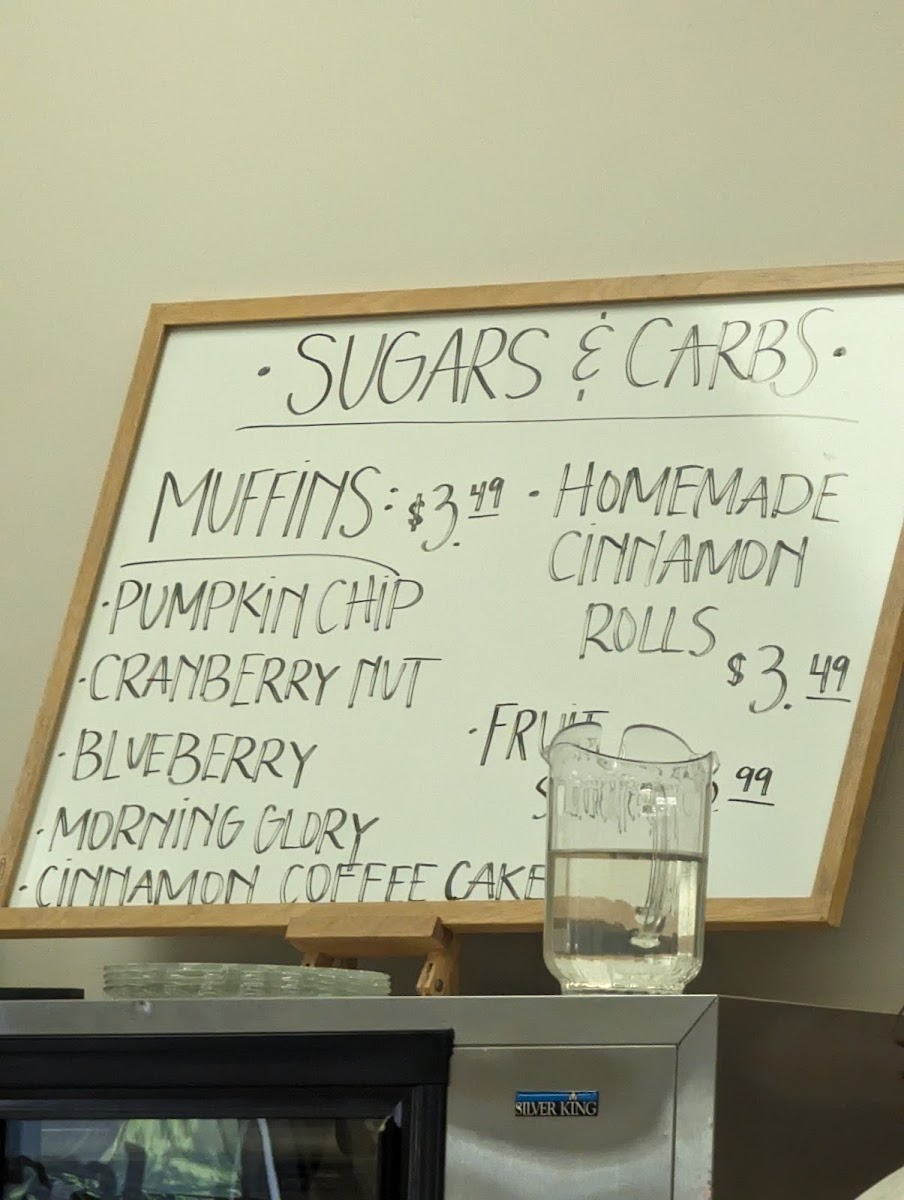 · SUGARS & CARBS ·
MUFFINS: $3.49
· PUMPKIN CHIP
· CRANBERRY NUT
· BLUEBERRY
· MORNING GLORY
· CINNAMON COFFEE CAKE
· HOMEMADE
CINNAMON
ROLLS
$3.49
· FRUIT
99
SILVER KING